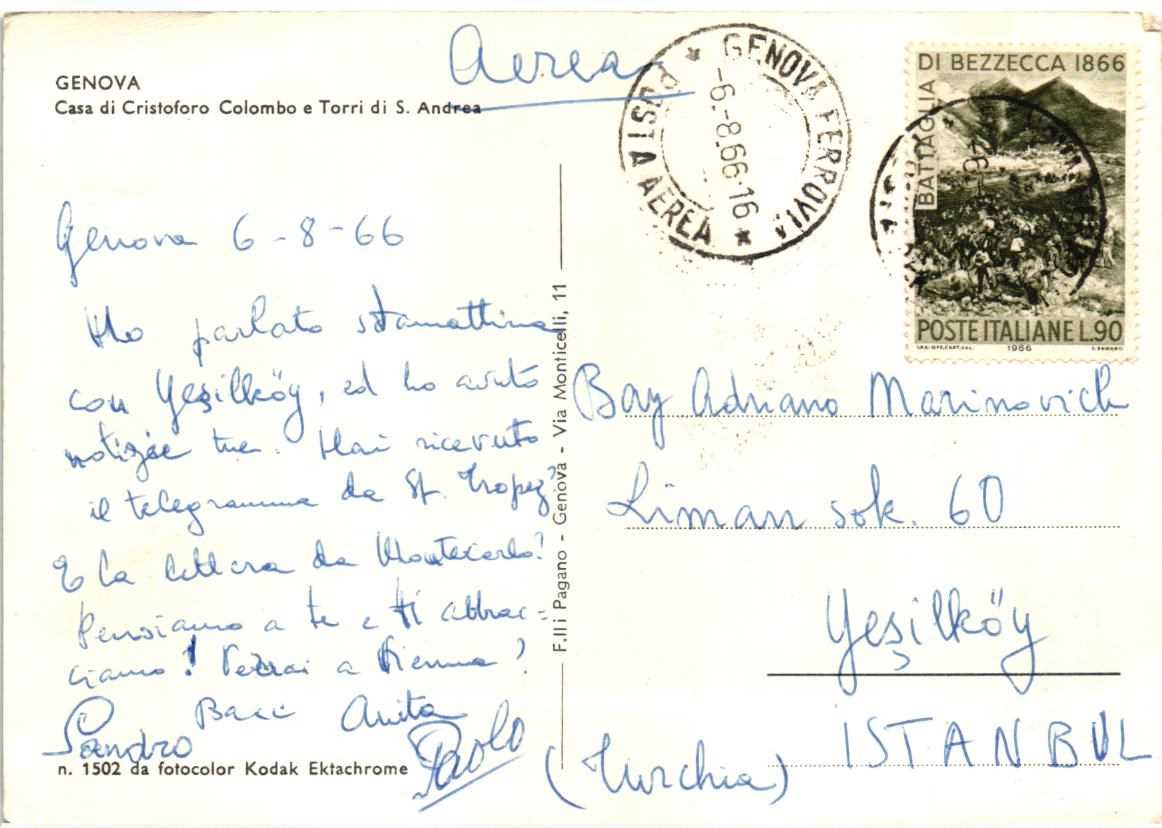 GENOVA
Casa di Cristoforo Colombo e Torri di S. Andrea
Aerea
GENOVA FERROVIA
POSTA AEREA
-6.-8.66·16
BATTAGLIA
DI BEZZECCA 1866
POSTE ITALIANE L.90
1966
Genova 6-8-66
Ho parlato stamattina
con Yeşilköy, ed ho avuto
notizie tue. Hai ricevuto
il telegramma da St. Tropez?
E la lettera da Montecarlo?
Pensiamo a te e ti abbrac=
ciamo! Verrai a Vienna?
Baci Anita
Sandro
Paolo
n. 1502 da fotocolor Kodak Ektachrome
F.lli Pagano - Genova - Via Monticelli, 11
Bay Adriano Marinovich
Liman sok. 60
Yeşilköy
ISTANBUL
(Turchia)